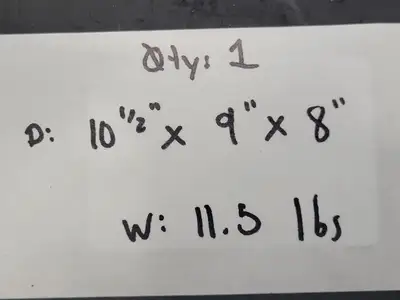 Qty: 1
D: 10 1/2" x 9" x 8"
W: 11.5 lbs